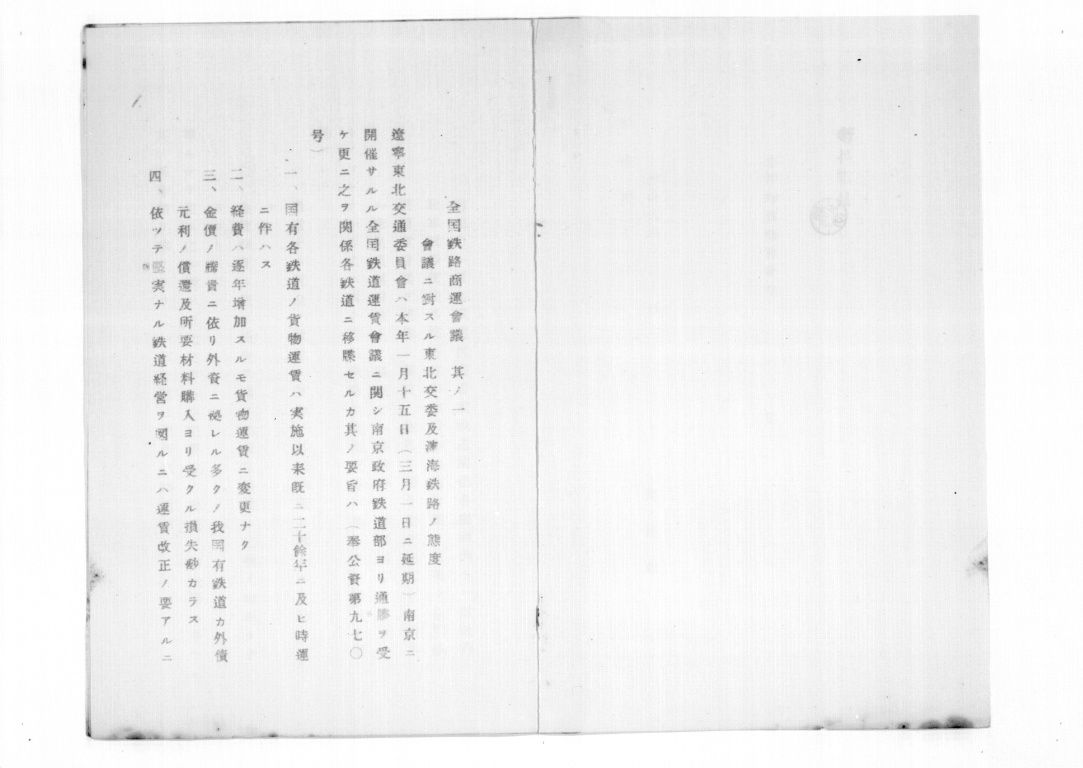 全国鉄路商運會議 其ノ一
會議ニ対スル東北交委及瀋海鉄路ノ態度
遼寧東北交通委員會ハ本年一月十五日（三月一日ニ延期）南京ニ
開催サルル全国鉄道運賃會議ニ関シ南京政府鉄道部ヨリ通牒ヲ受
ケ更ニ之ヲ関係各鉄道ニ移牒セルカ其ノ要旨ハ（奉公資第九七〇
号）
一、国有各鉄道ノ貨物運賃ハ実施以来既ニ二十餘年ニ及ヒ時運
ニ伴ハス
二、経費ハ逐年増加スルモ貨物運賃ニ変更ナク
三、金價ノ騰貴ニ依リ外資ニ拠レル多クノ我国有鉄道カ外債
元利ノ償還及所要材料購入ヨリ受クル損失尠カラス
四、依ツテ堅実ナル鉄道経営ヲ図ルニハ運賃改正ノ要アルニ